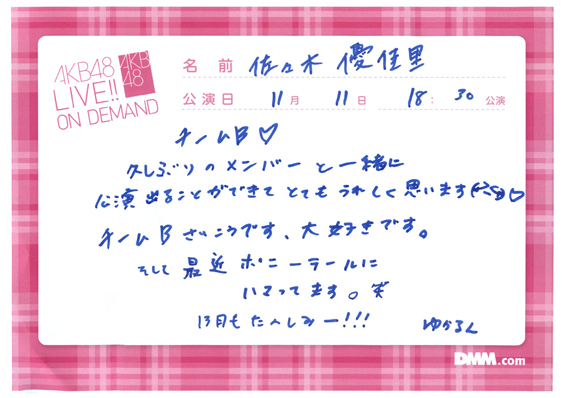 AKB48
LIVE!!
ON DEMAND
AKB
48
名前 佐々木 優佳里
公演日 11月 11日 18:30公演
チームB♡
久しぶりのメンバーと一緒に
公演出ることができてとてもうれしく思います♡
チームBさいこうです、大好きです。
そして最近ポニーテールに
います。笑
13日もたのしみー!!!
ゆかるん
DMM.com